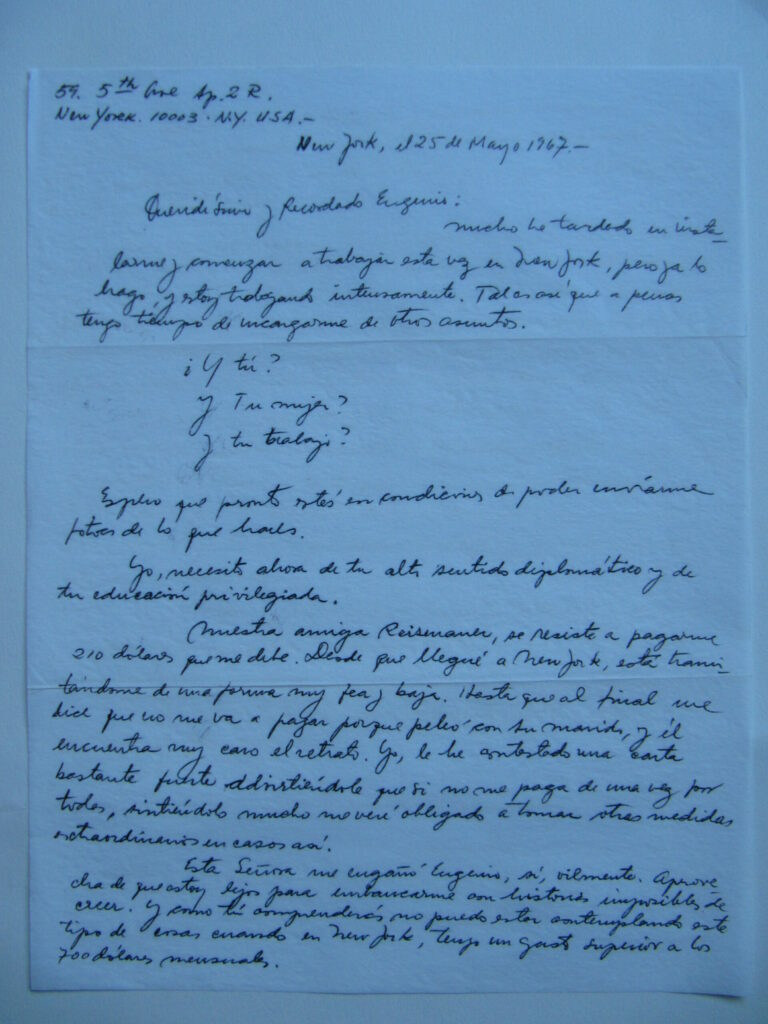 59. 5th Ave Ap. 2 R.
New Yorck. 10003 · N.Y. USA.-
New York, el 25 de Mayo 1967.-
Queridísimo y Recordado Eugenio:
mucho he tardado en insta-
larme y comenzar a trabajar esta vez en New York, pero ya lo
hago, y estoy trabajando intensamente. Tal es así que a penas
tengo tiempo de encargarme de otros asuntos.
¿Y tú?
y Tu mujer?
y tu trabajo?
Espero que pronto estés en condiciones de poder enviarme
fotos de lo que haces.
Yo, necesito ahora de tu alto sentido diplomático y de
tu educación privilegiada.
Nuestra amiga Reisenauer, se resiste a pagarme
210 dólares que me debe. Desde que llegué a New York, está trami-
tándome de una forma muy fea y baja. Hasta que al final me
dice que no me va a pagar porque peleó con su marido, y él
encuentra muy caro el retrato. Yo, le he contestado una carta
bastante fuerte advirtiéndole que si no me paga de una vez por
todas, sintiéndolo mucho me veré obligado a tomar otras medidas
extraordinarios en casos así.
Esta Señora me engañó Eugenio, sí, vilmente. Aprove-
cha de que estoy lejos para embaucarme con historias imposibles de
creer. Y como tú comprenderás no puedo estar contemplando este
tipo de cosas cuando en New York, tengo un gasto superior a los
700 dólares mensuales.